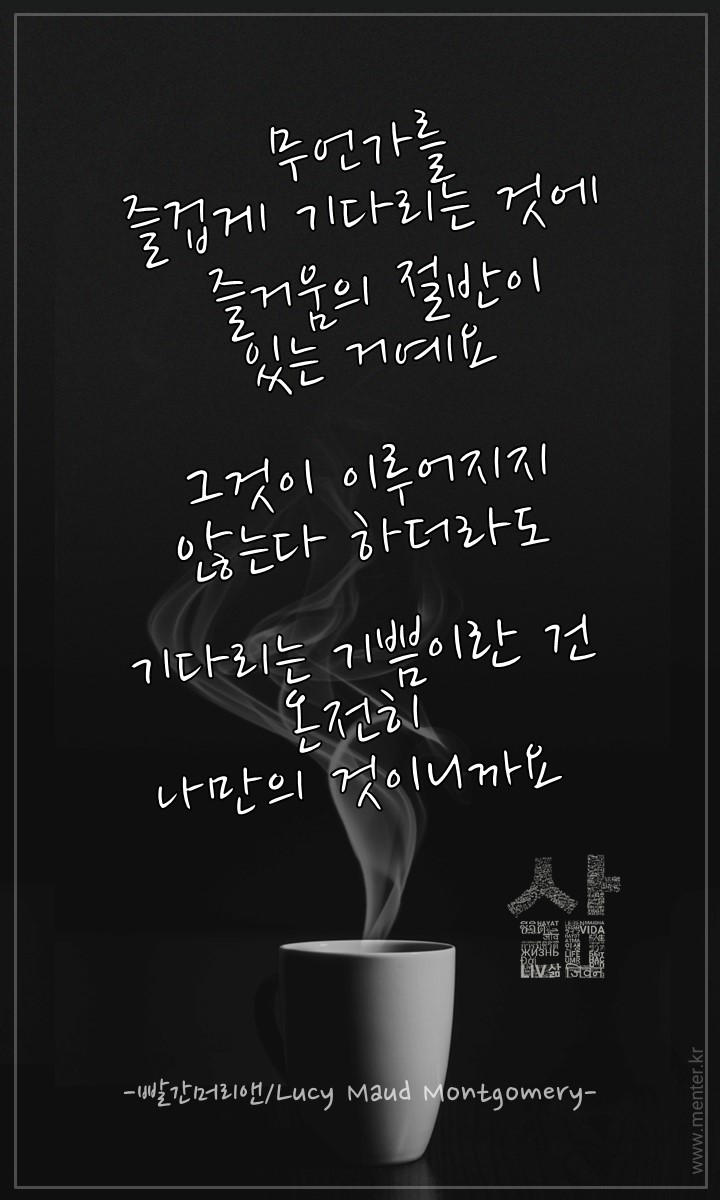 무언가를
즐겁게 기다리는 것에
즐거움의 절반이
있는 거예요
그것이 이루어지지
않는다 하더라도
기다리는 기쁨이란 건
온전히
나만의 것이니까요
삶
HAYAT
VIDA
ЖИЗНЬ
LIFE
LIV 삶
-빨간머리앤/Lucy Maud Montgomery-
www.menter.kr